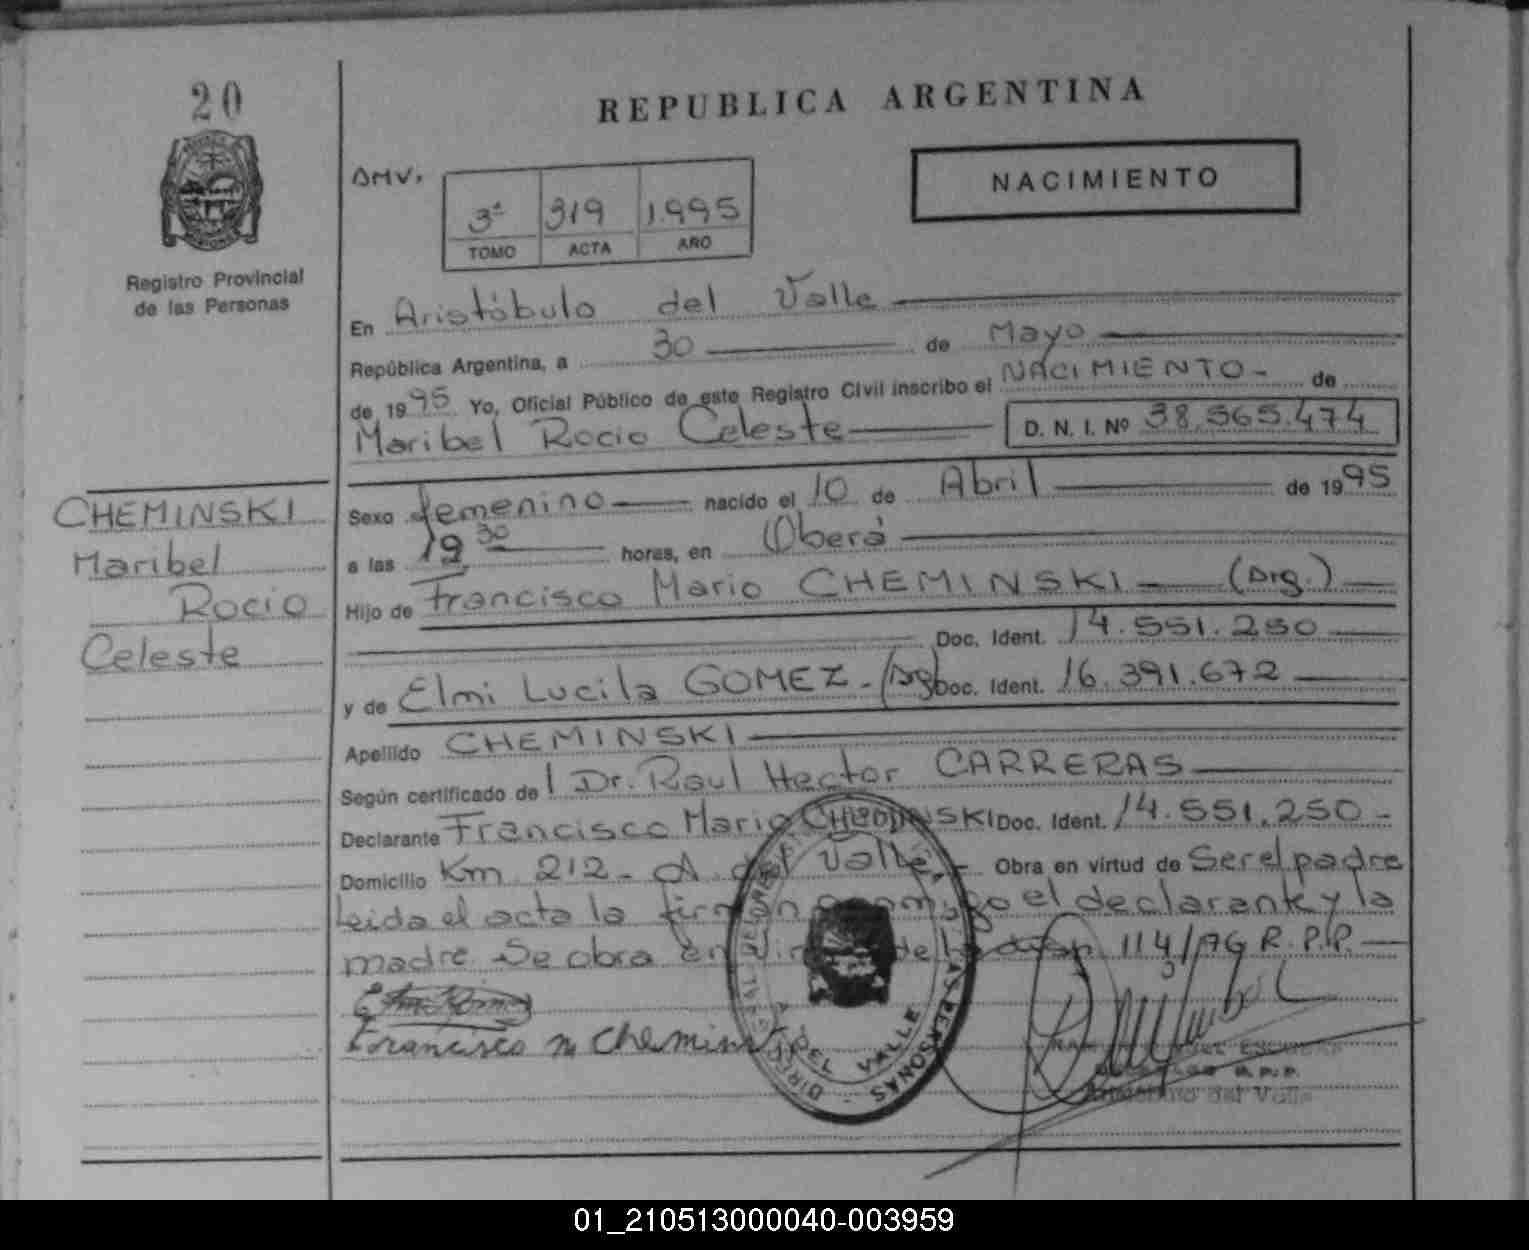 20
REPUBLICA ARGENTINA
AMV.
3ª 319 1.995
TOMO ACTA AÑO
NACIMIENTO
Registro Provincial
de las Personas
En Aristóbulo del Valle
República Argentina, a 30 de Mayo
de 1995 Yo, Oficial Público de este Registro Civil inscribo el NACIMIENTO - de
Maribel Rocio Celeste D. N. I. Nº 38.565.474
CHEMINSKI
Maribel
Rocio
Celeste
Sexo femenino nacido el 10 de Abril de 1995
a las 19 30 horas, en Oberá
Hijo de Francisco Mario CHEMINSKI (Arg.)
Doc. Ident. 14.551.250
y de Elmi Lucila GOMEZ - (Arg) Doc. Ident. 16.391.672
Apellido CHEMINSKI
Según certificado de l Dr. Raul Hector CARRERAS
Declarante Francisco Mario CHEMINSKI Doc. Ident. 14.551.250 -
Domicilio Km 212 - A. del Valle - Obra en virtud de Ser el padre
Leida el acta la firman conmigo el declarante y la
madre. Se obra en virtud de la disp 114/96 R.P.P.
Francisco M Cheminski
A. DEL VALLE
PERSONAS
Aristóbulo del Valle
01_210513000040-003959